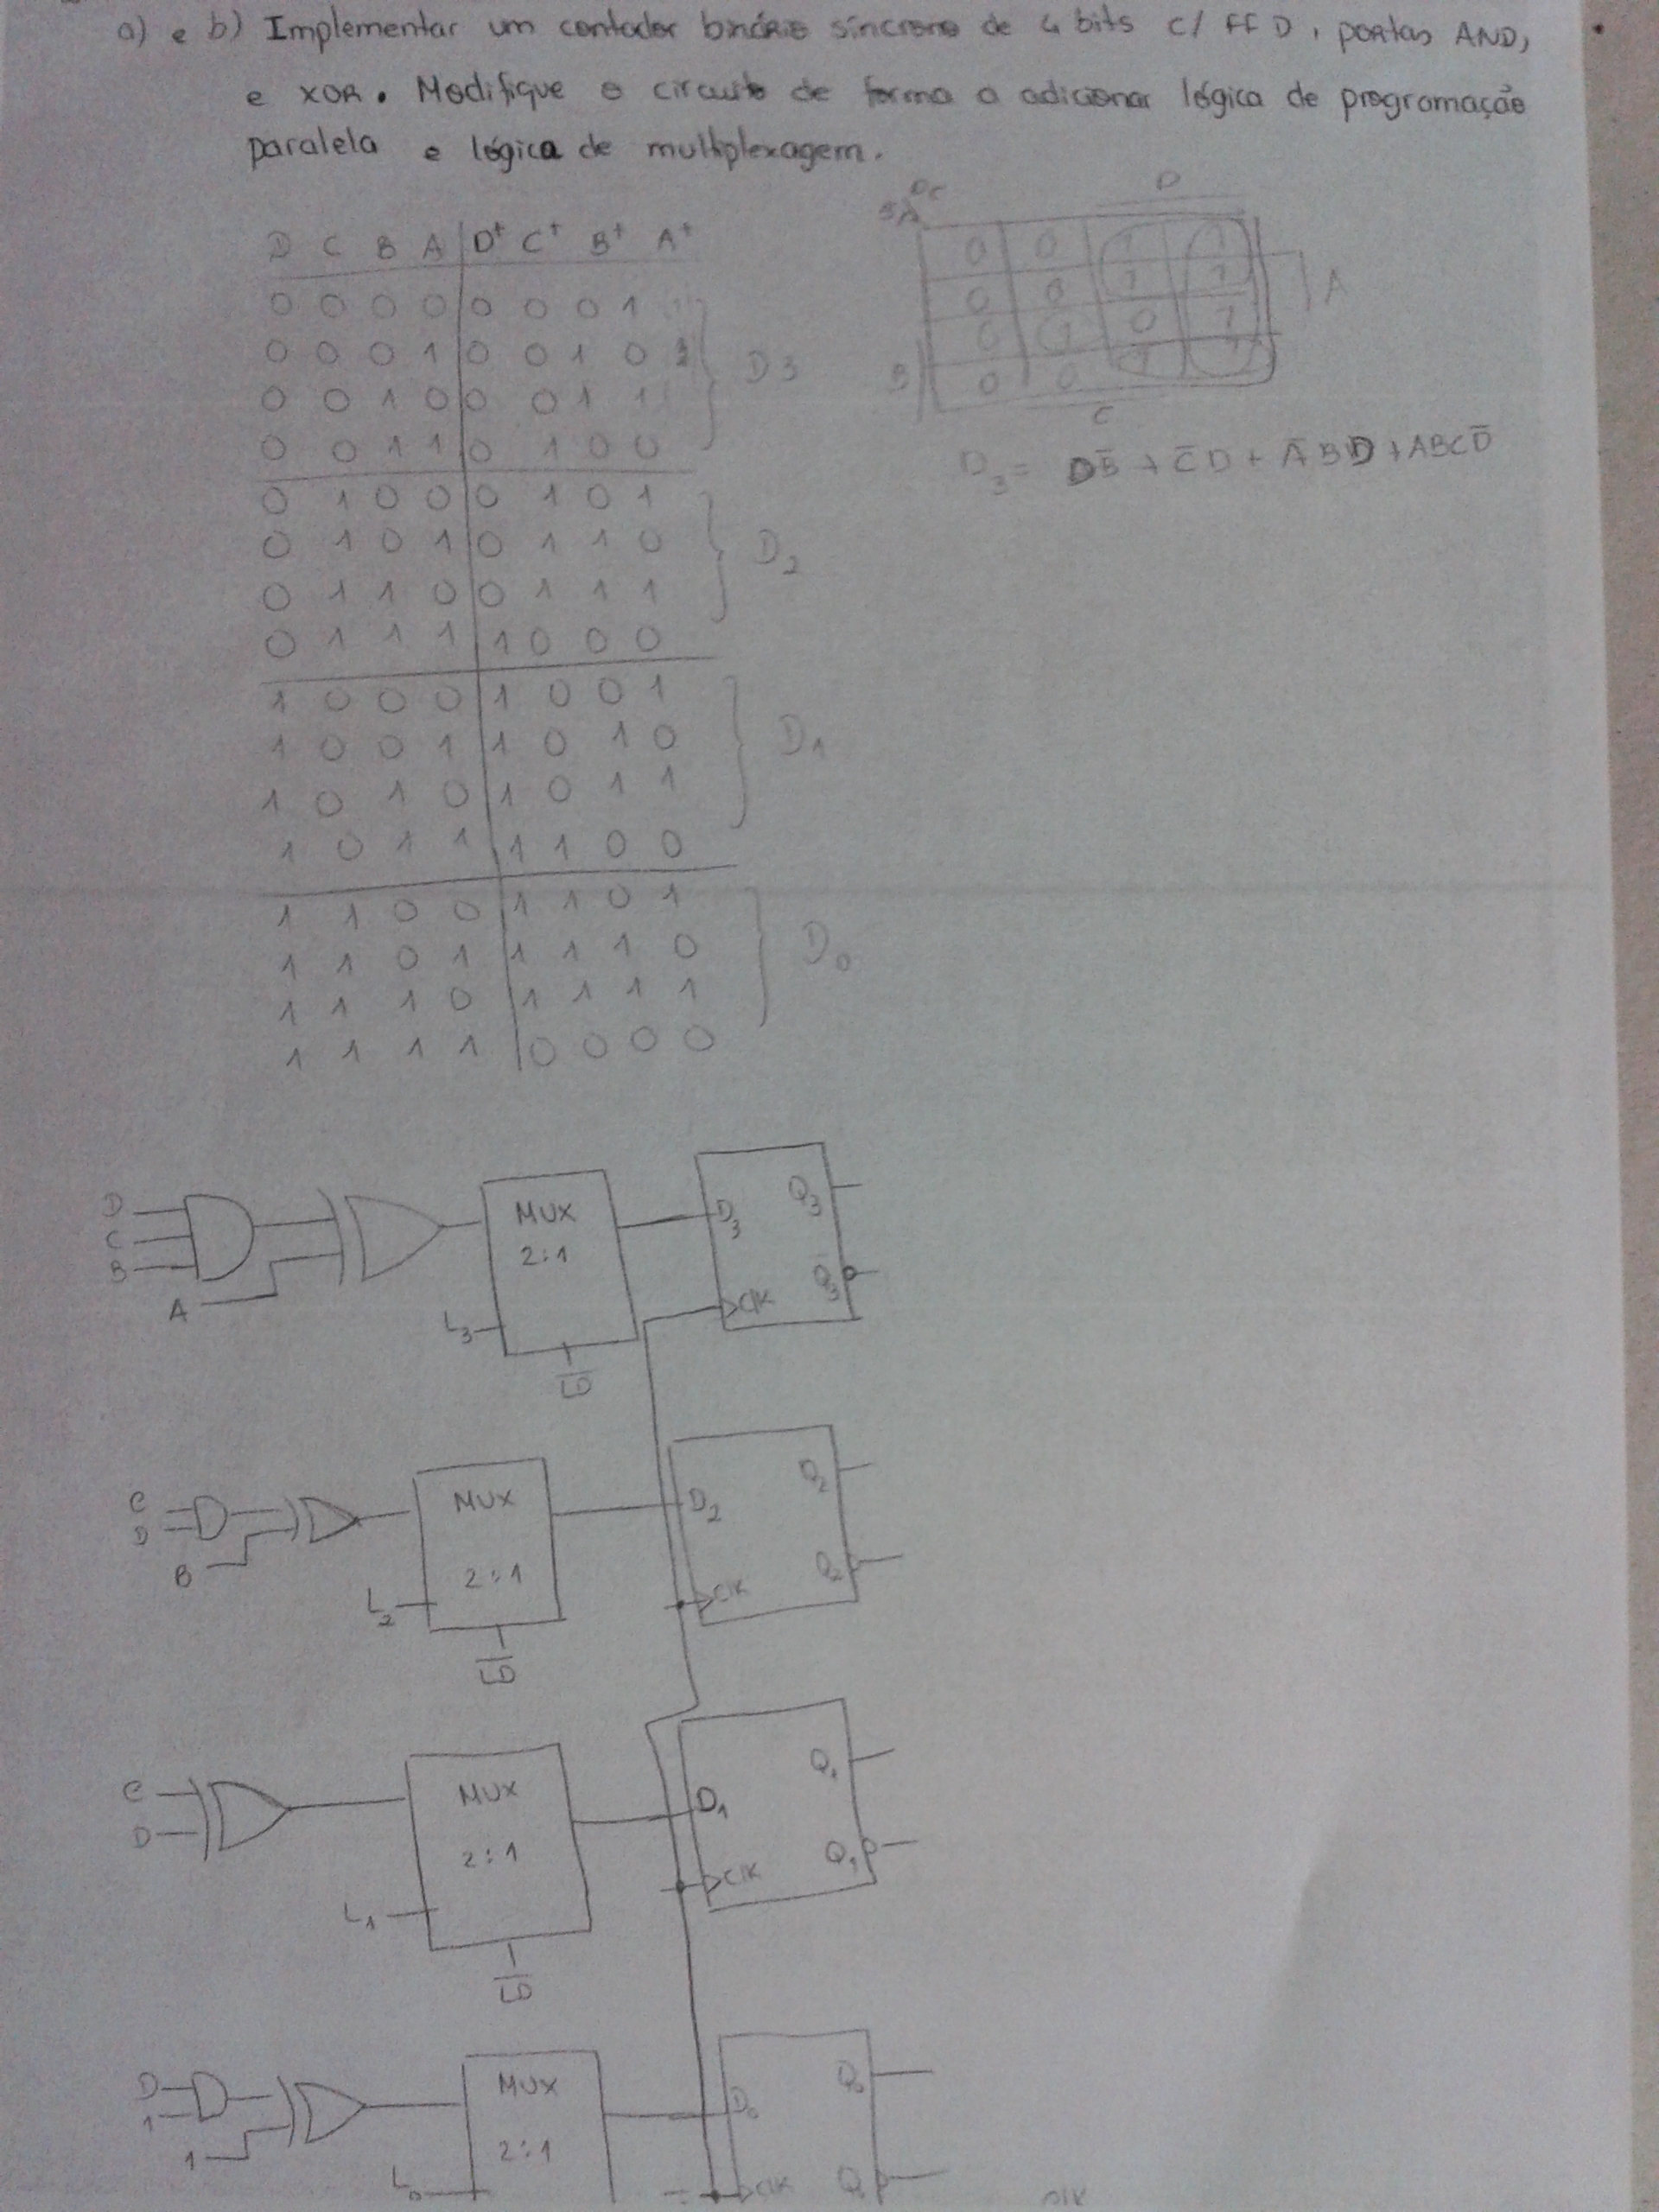 a) e b) Implementar um contador binário síncrono de 4 bits c/ FF D, portas AND,
e XOR. Modifique o circuito de forma a adicionar lógica de programação
paralela e lógica de multiplexagem.
D C B A D⁺ C⁺ B⁺ A⁺
0 0 0 0 0 0 0 1
0 0 0 1 0 0 1 0
0 0 1 0 0 0 1 1
0 0 1 1 0 1 0 0
D3
0 1 0 0 0 1 0 1
0 1 0 1 0 1 1 0
0 1 1 0 0 1 1 1
0 1 1 1 1 0 0 0
D₂
1 0 0 0 1 0 0 1
1 0 0 1 1 0 1 0
1 0 1 0 1 0 1 1
1 0 1 1 1 1 0 0
D₁
1 1 0 0 1 1 0 1
1 1 0 1 1 1 1 0
1 1 1 0 1 1 1 1
1 1 1 1 0 0 0 0
D₀
DC
BA
D
0 0 1 1
0 0 1 1
0 1 0 1
0 0 1 1
A
B
C
D₃ = DB̅ + C̅D + A̅BD + ABCD̅
D
C
B
A
MUX
2:1
L₃
L̅D̅
D₃
Q₃
CLK
Q̅₃
C
D
B
MUX
2:1
L₂
L̅D̅
D₂
Q₂
CLK
Q₂
C
D
MUX
2:1
L₁
L̅D̅
D₁
Q₁
CLK
Q₁
D
1
1
MUX
2:1
L₀
D₀
Q₀
CLK
CLK